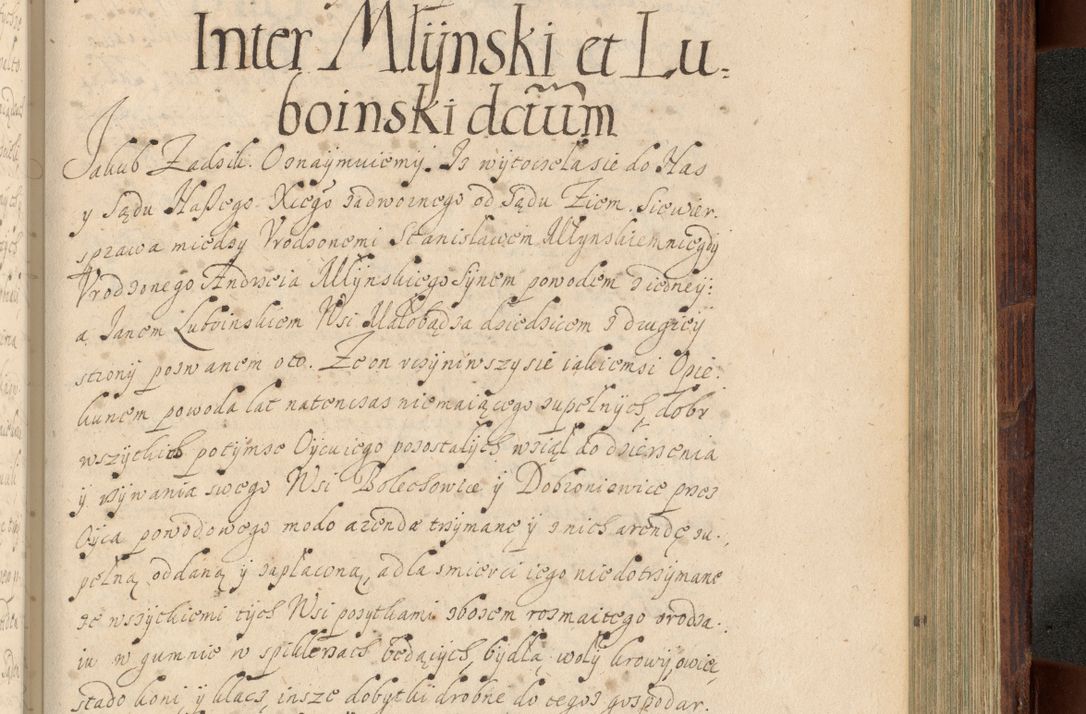 Inter Młijnski et Lu-
boinski dctum
Jakub Zadzik. Oznaÿmuiemÿ. Iz wÿtoczela sie do Nas
y Sądu Naßego Xiego zadwornego od Sądu Ziem. Siewier.
sprawa miedzy Vrodzonemi Stanislawem Młynskiem niegdÿ
Vrodzonego Andrzeia Młÿnskiego Sÿnem powodem z iedneÿ:
a Janem Luboinskiem Wsi Małobądza dziedzicem z drugieÿ
stronÿ pozwanem oto. Ze on vczÿniwszy sie iakiemsi Opie-
kunem powoda lat natenczas niemaiącego zupełnÿch, dobr
wszÿtkich potÿmze Oÿcu iego pozostałÿch wziął do dzierzenia
ÿ vzÿwania swego Wsi Bolechowice ÿ Dobroniewice przez
Oÿca powodowego modo arendæ trzÿmane ÿ z nich arendę zu-
pełną oddaną ÿ zapłaconą, a dla smierci iego niedotrzÿmane
ze wszÿtkiemi tÿch Wsi pozÿtkami zbozem rozmaitego vrodza-
iu w gumnie w spiklerzach będącÿch, bÿdłą wołÿ krowÿ owiec,
stado koni ÿ klacz, insze dobÿtki drobne do tegoz gospodar-